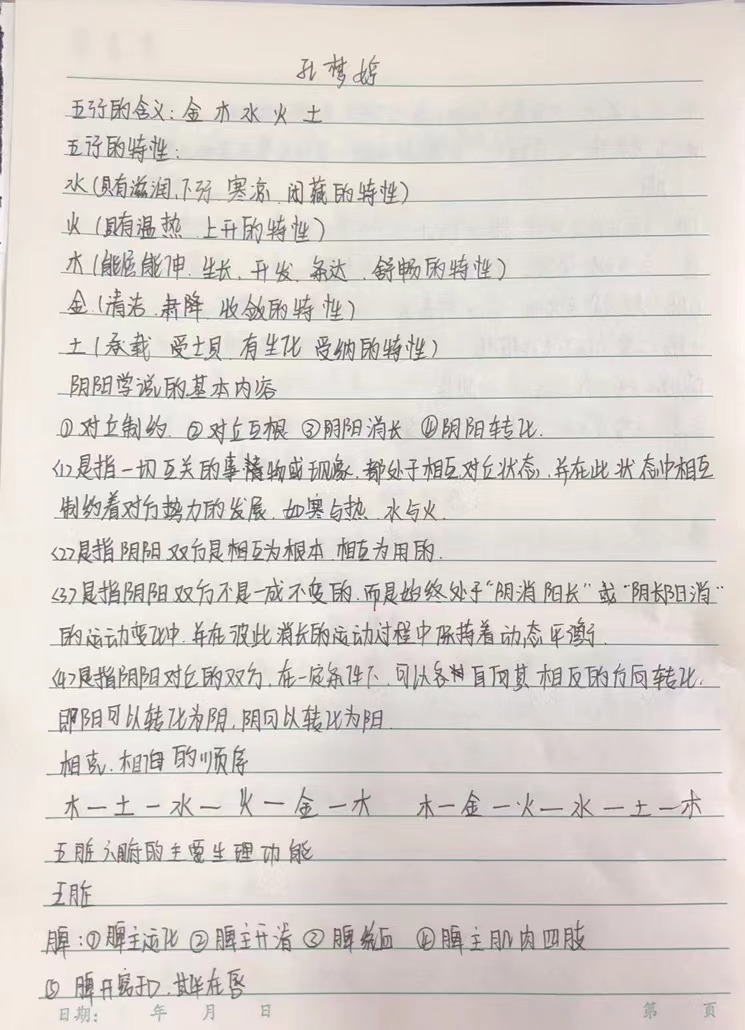 孔梦婷
五行的含义:金 木 水 火 土
五行的特性:
水(具有滋润,下行 寒凉 闭藏的特性)
火(具有温热 上升的特性)
木(能屈能伸.生长、升发、条达、舒畅的特性)
金(清洁.肃降 收敛的特性)
土(承载 受土贝 有生化 受纳的特性)
阴阳学说的基本内容
①对立制约.②对立互根 ③阴阳消长 ④阴阳转化.
<1>是指一切互关的事物或现象,都处于相互对立状态,并在此状态中相互
制约着对方势力的发展.如寒与热.水与火.
<2>是指阴阳双方是相互为根本.相互为用的.
<3>是指阴阳双方不是一成不变的.而是始终处于“阴消阳长”或“阴长阳消”
的运动变化中.并在彼此消长的运动过程中保持着动态平衡.
<4>是指阴阳对立的双方,在一定条件下.可以各自向其相反的方向转化.
即阳可以转化为阴,阴可以转化为阳.
相克.相侮的顺序
木—土—水—火—金—木 木—金—火—水—土—木
五脏六腑的主要生理功能
五脏
脾:①脾主运化 ②脾主升清 ③脾统血 ④脾主肌肉四肢
⑤ 脾开窍于口.其华在唇
日期: 年 月 日 第 页